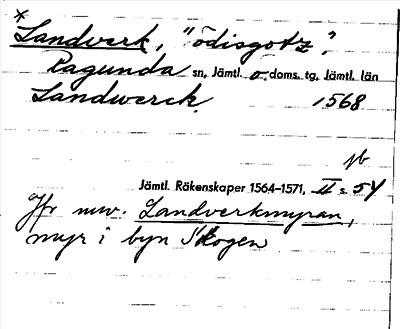 * Landverk, "ödisgotz".
Ragunda sn, Jämtl. o. doms. tg, Jämtl. län
Landwerck. 1568
jb
Jämtl. Räkenskaper 1564-1571, II s. 54
Jfr nuv. Landverkmyran,
myr i byn Skogen